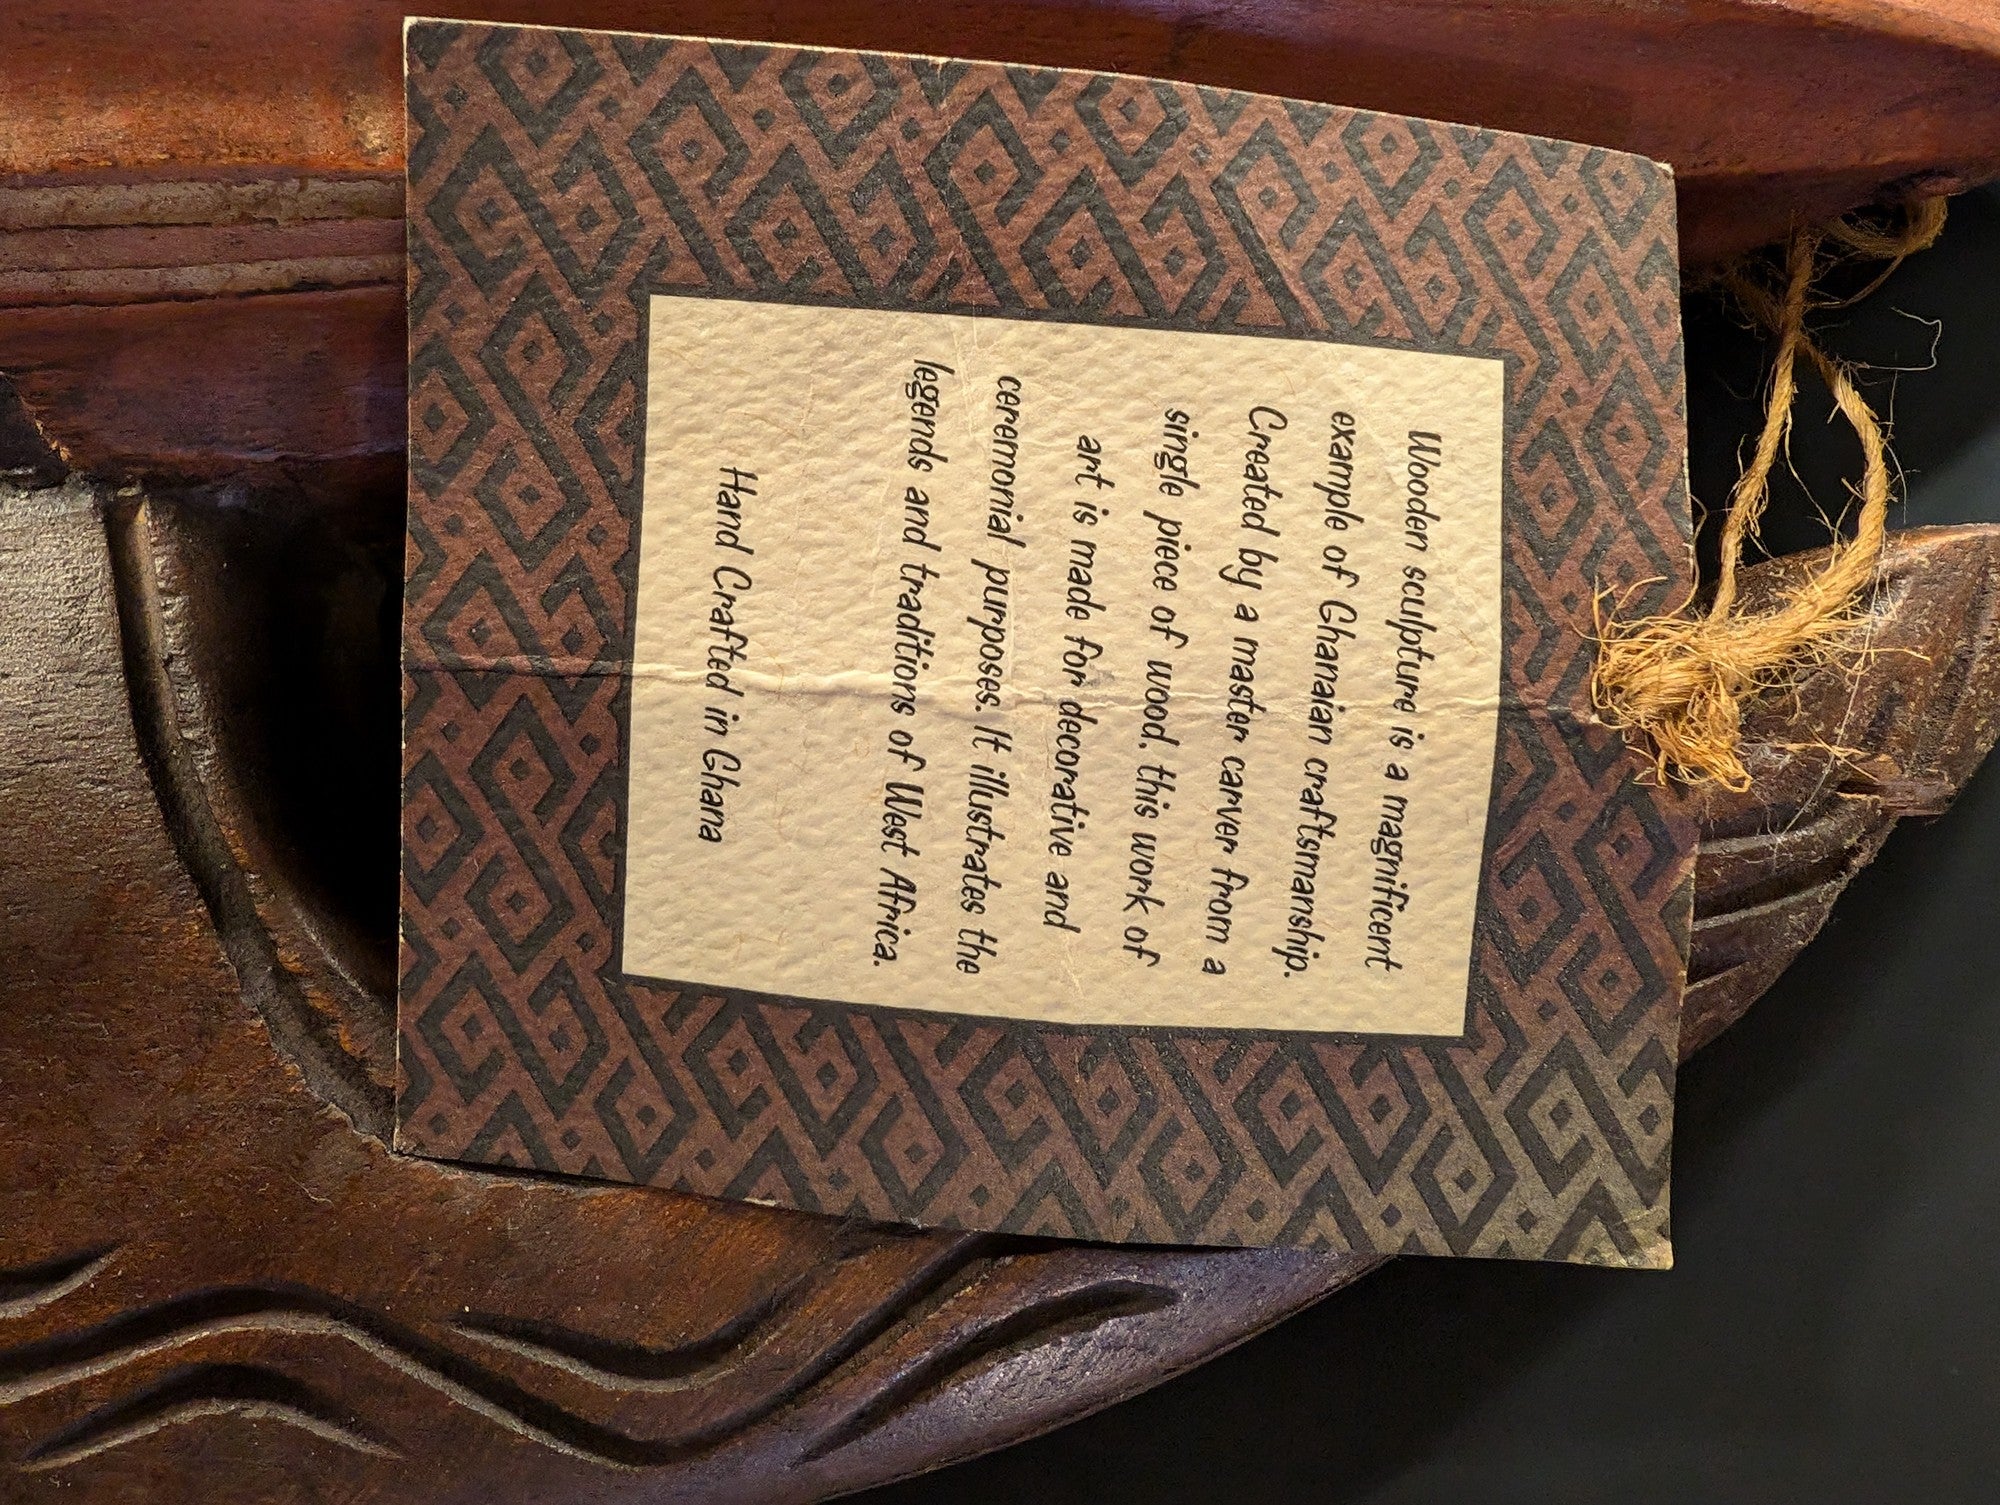 Wooden sculpture is a magnificent
example of Ghanaian craftsmanship.
Created by a master carver from a
single piece of wood, this work of
art is made for decorative and
ceremonial purposes. It illustrates the
legends and traditions of West Africa.
Hand Crafted in Ghana